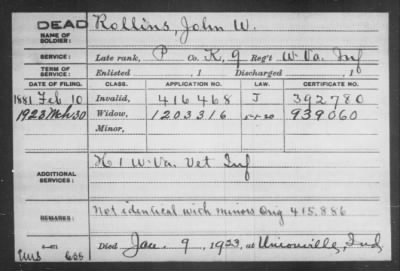 DEAD Rollins, John W.
NAME OF SOLDIER:
SERVICE: Late rank, P Co. K, 9 Reg't W. Va. Inf
TERM OF SERVICE: Enlisted , 1 Discharged , 1
DATE OF FILING. CLASS. APPLICATION NO. LAW. CERTIFICATE NO.
1881 Feb 10 Invalid, 416468 J 392780
1923 Mch 30 Widow, 1203316 5-1-20 939060
Minor,
ADDITIONAL SERVICES: K 1 W. Va. Vet Inf
REMARKS: Not identical with minors Orig 415.886
Died Jan. 9, 1923, at Unionville, Ind.